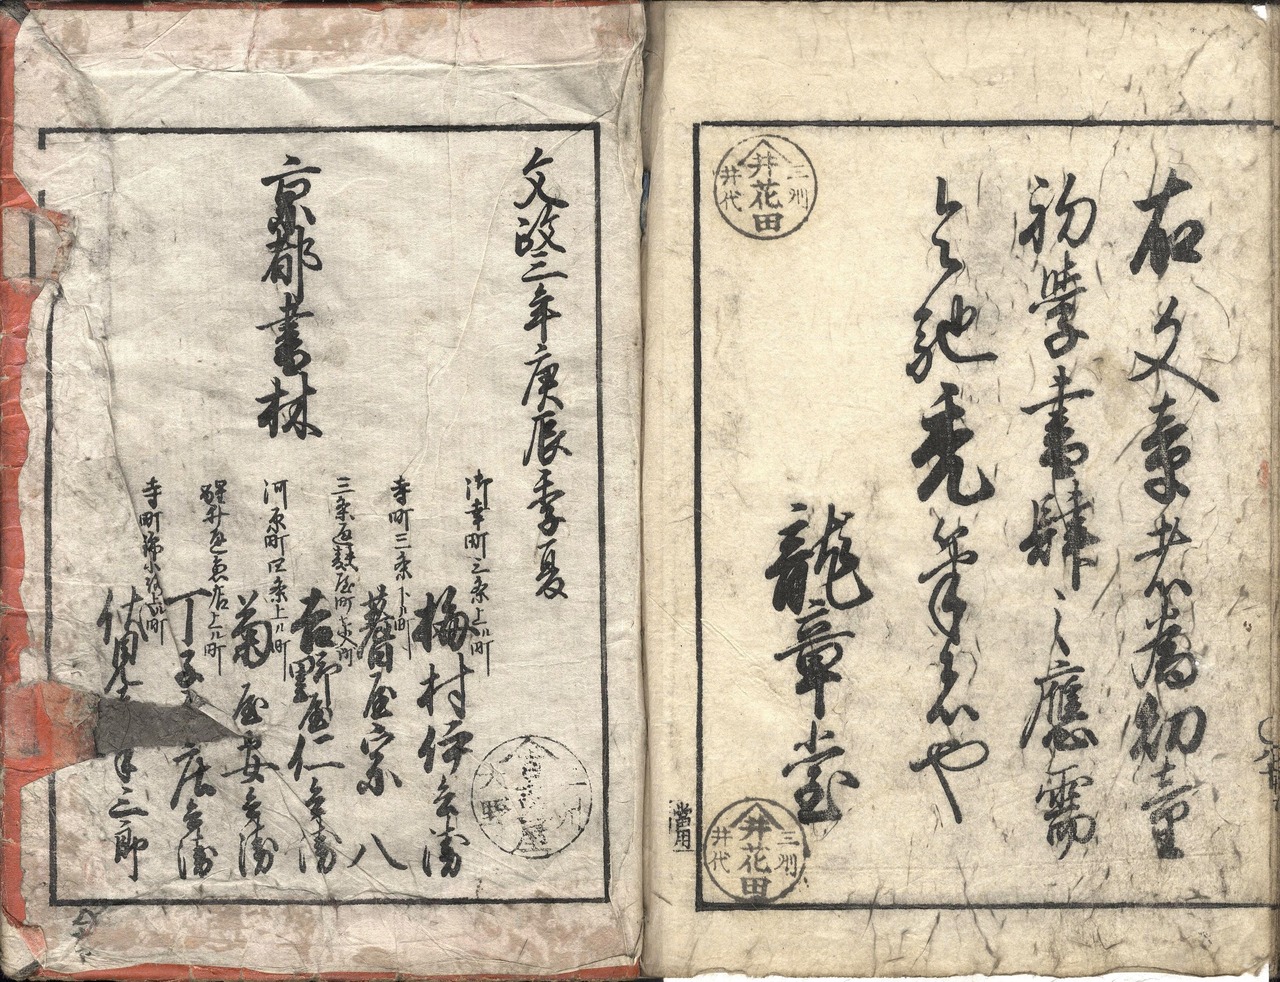 右文章者為幼童
初學書肆之應需
令馳禿筆者也
龍章堂
三州
井花田
井代
三州
井花田
井代
當用
文政三年庚辰季夏
京都書林
御幸町三条上ル町
梅村伊兵衛
寺町三条下ル町
蓍屋宗八
三条通麸屋町東入町
吉野屋仁兵衛
河原町四条上ル町
菊屋安兵衛
醒井通魚店上ル町
丁子 庄兵衛
寺町 上ル町
伏見 半三郎
三州
大野